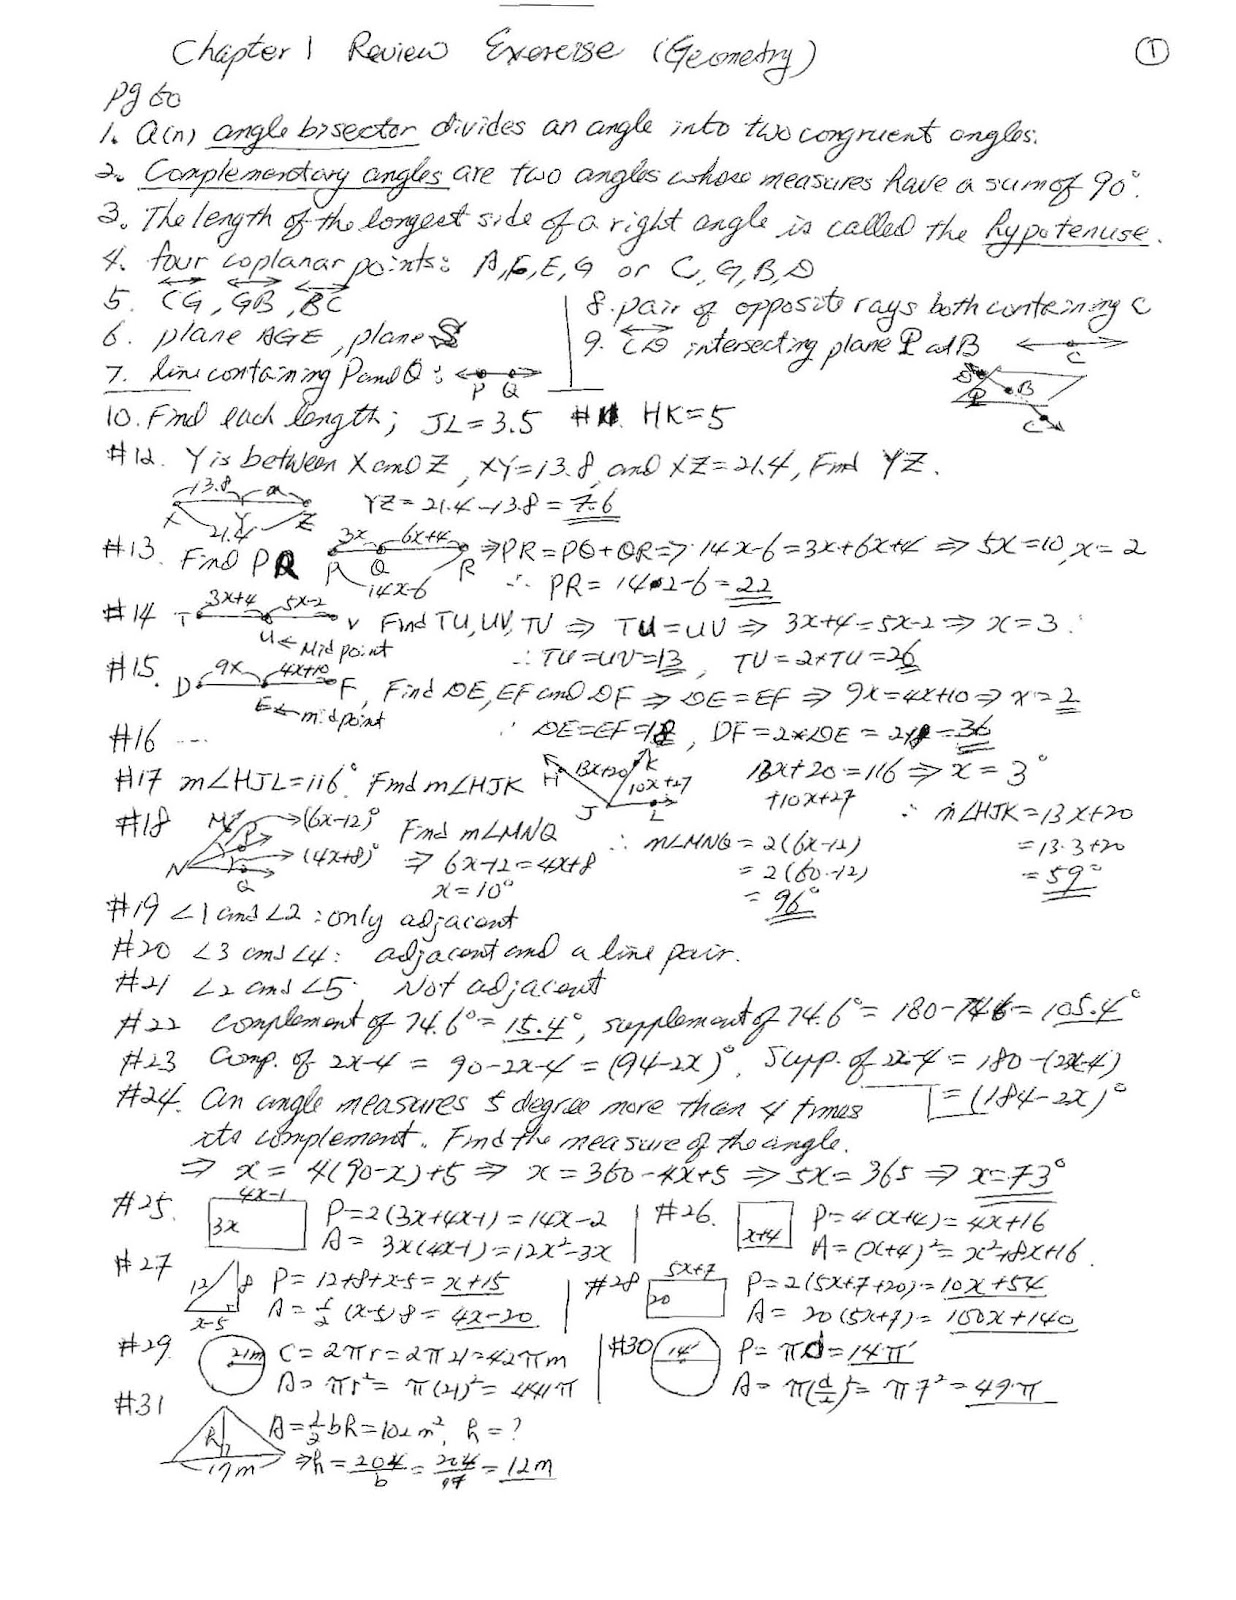 Chapter 1 Review Exercise (Geometry)
①
pg 60
1. a(n) angle bisector divides an angle into two congruent angles.
2. Complementary angles are two angles whose measures have a sum of 90°.
3. The length of the longest side of a right angle is called the hypotenuse.
4. four coplanar points: A, F, E, G or C, G, B, D
5. CG, GB, BC
6. plane AGE, plane S
7. line containing P and Q:
P Q
8. pair of opposite rays both containing C
C
9. CD intersecting plane P at B
D P B C
10. Find each length; JL = 3.5 #11. HK = 5
#12. Y is between X and Z, XY = 13.8, and XZ = 21.4, Find YZ.
13.8 a X Y Z 21.4
YZ = 21.4 - 13.8 = 7.6
#13. Find PR
3x 6x+4 P Q R 14x-6
⇒ PR = PQ + QR ⇒ 14x-6 = 3x+6x+4 ⇒ 5x = 10, x = 2
∴ PR = 14•2-6 = 22
#14 T 3x+4 5x-2 V
U ← Midpoint
Find TU, UV, TV ⇒ TU = UV ⇒ 3x+4 = 5x-2 ⇒ x = 3
∴ TU = UV = 13, TU = 2×TU = 26
#15. D 9x 4x+10 F
E ← midpoint
, Find DE, EF and DF ⇒ DE = EF ⇒ 9x = 4x+10 ⇒ x = 2
∴ DE = EF = 18, DF = 2×DE = 2×18 = 36
#16 ---
#17 m∠HJL = 116° Find m∠HJK
H 13x+20 K 10x+27 J L
13x+20 = 116 ⇒ x = 3°
+10x+27
∴ m∠HJK = 13x+20
= 13·3+20
= 59°
#18 M P N Q → (6x-12)°
→ (4x+8)°
Find m∠MNQ
⇒ 6x-12 = 4x+8
x = 10°
∴ m∠MNQ = 2(6x-12)
= 2(60-12)
= 96°
#19 ∠1 and ∠2 : only adjacent
#20 ∠3 and ∠4: adjacent and a line pair.
#21 ∠2 and ∠5. Not adjacent
#22 complement of 74.6° = 15.4°, supplement of 74.6° = 180-74.6 = 105.4°
#23 Comp. of 2x-4 = 90-2x-4 = (94-2x)°. Supp. of 2x-4 = 180-(2x-4)
= (184-2x)°
#24. An angle measures 5 degree more than 4 times
its complement. Find the measure of the angle.
⇒ x = 4(90-x)+5 ⇒ x = 360-4x+5 ⇒ 5x = 365 ⇒ x = 73°
#25. 4x-1 3x
P = 2(3x+4x-1) = 14x-2
A = 3x(4x-1) = 12x²-3x
#26. x+4
P = 4(x+4) = 4x+16
A = (x+4)² = x²+8x+16
#27 12 8 x-5
P = 12+8+x-5 = x+15
A = ½(x-5)8 = 4x-20
#28 5x+7 20
P = 2(5x+7+20) = 10x+54
A = 20(5x+7) = 100x+140
#29 21m
C = 2πr = 2π21 = 42πm
A = πr² = π(21)² = 441π
#30 14'
P = πd = 14π'
A = π(d/2)² = π7² = 49π
#31
h 17m
A = ½bh = 102m², h = ?
⇒ h = 204/b = 204/17 = 12m